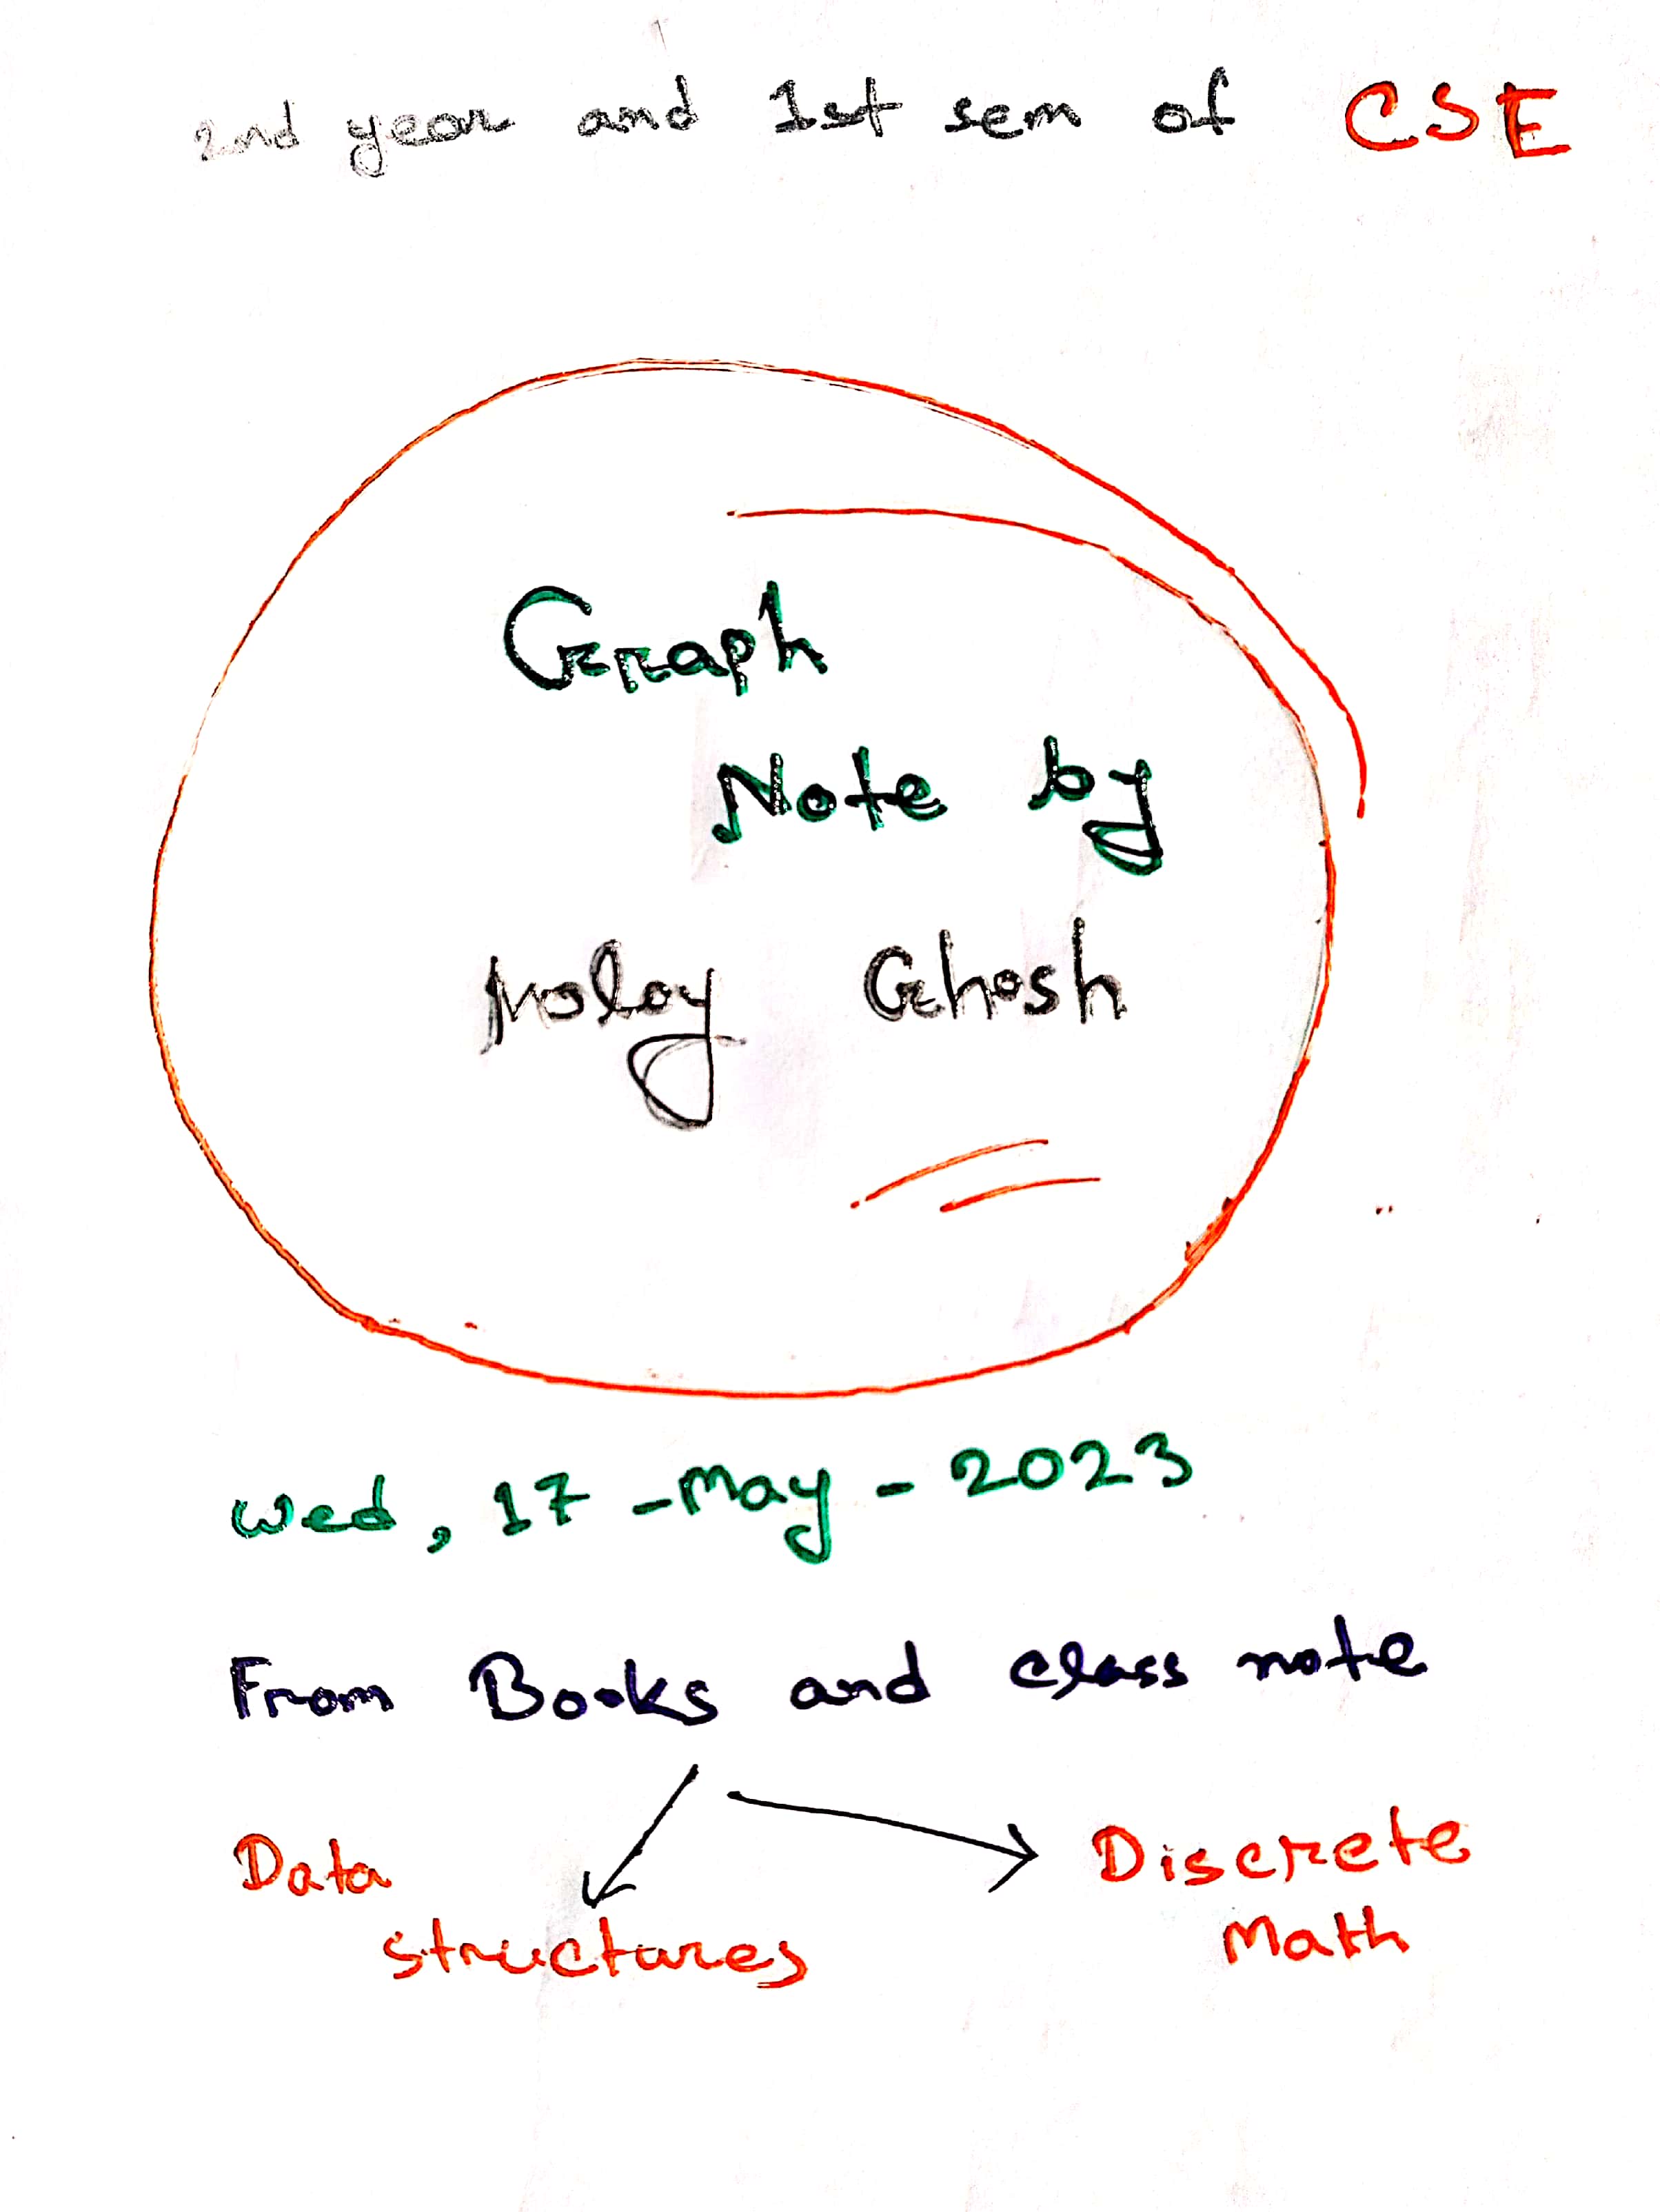 2nd year and 1st sem of CSE
Graph
Note by
Moloy Ghosh
Wed, 17 - May - 2023
From Books and class note
Data
structures
Discrete
Math